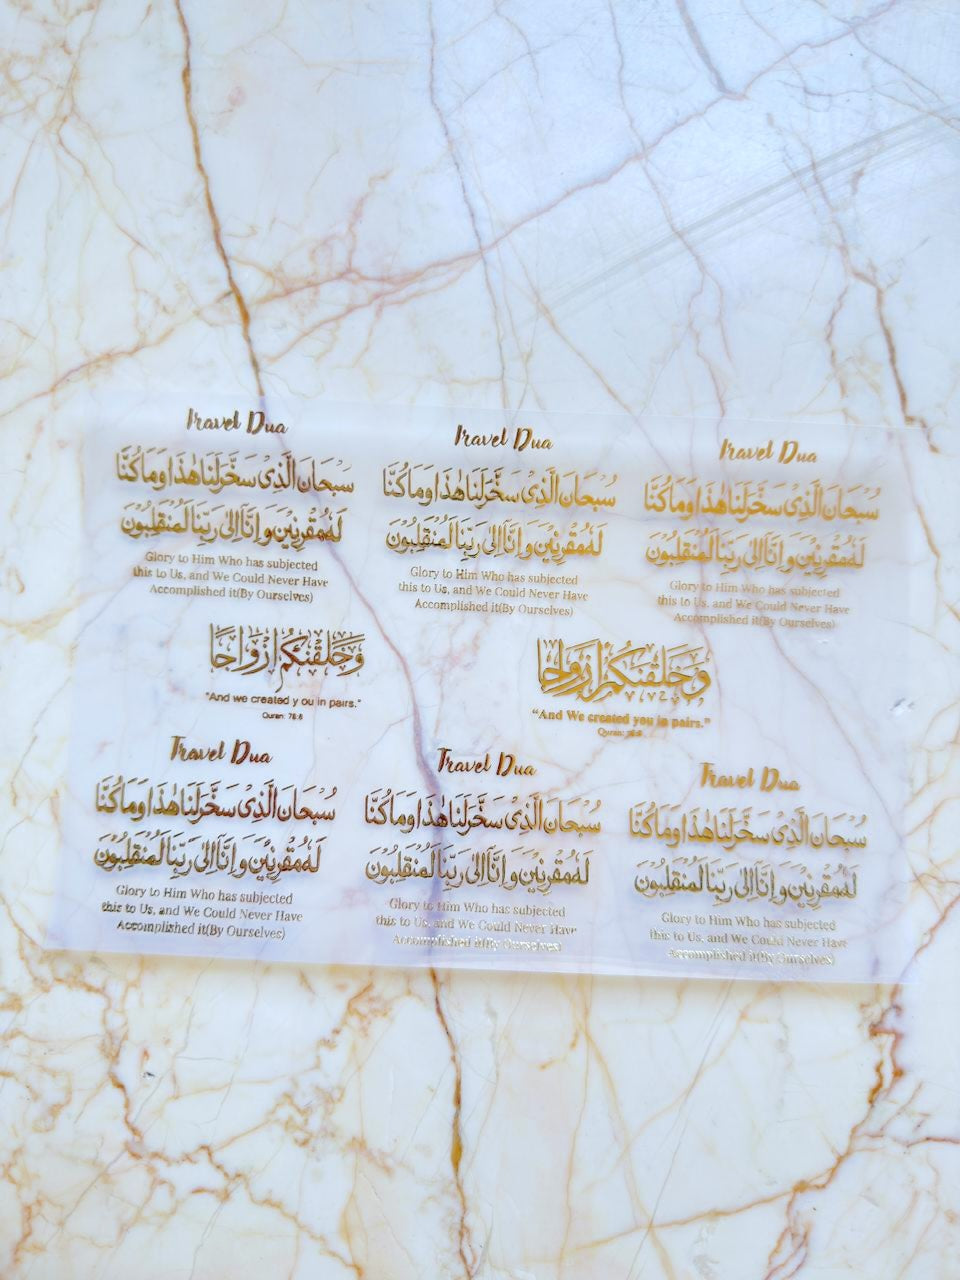 Travel Dua
سُبْحَانَ الَّذِى سَخَّرَلَنَا هٰذَا وَمَا كُنَّا
لَهُ مُقْرِنِيْنَ وَ اِنَّا اِلٰى رَبِّنَا لَمُنْقَلِبُوْنَ
Glory to Him Who has subjected
this to Us, and We Could Never Have
Accomplished it(By Ourselves)
Travel Dua
سُبْحَانَ الَّذِى سَخَّرَلَنَا هٰذَا وَمَا كُنَّا
لَهُ مُقْرِنِيْنَ وَ اِنَّا اِلٰى رَبِّنَا لَمُنْقَلِبُوْنَ
Glory to Him Who has subjected
this to Us, and We Could Never Have
Accomplished it(By Ourselves)
Travel Dua
سُبْحَانَ الَّذِى سَخَّرَلَنَا هٰذَا وَمَا كُنَّا
لَهُ مُقْرِنِيْنَ وَ اِنَّا اِلٰى رَبِّنَا لَمُنْقَلِبُوْنَ
Glory to Him Who has subjected
this to Us, and We Could Never Have
Accomplished it(By Ourselves)
وَخَلَقْنَكُمْ أَزْوَاجًا
"And we created y ou in pairs."
Quran: 78:8
وَخَلَقْنَكُمْ أَزْوَاجًا
"And We created you in pairs."
Quran: 78:8
Travel Dua
سُبْحَانَ الَّذِى سَخَّرَلَنَا هٰذَا وَمَا كُنَّا
لَهُ مُقْرِنِيْنَ وَ اِنَّا اِلٰى رَبِّنَا لَمُنْقَلِبُوْنَ
Glory to Him Who has subjected
this to Us, and We Could Never Have
Accomplished it(By Ourselves)
Travel Dua
سُبْحَانَ الَّذِى سَخَّرَلَنَا هٰذَا وَمَا كُنَّا
لَهُ مُقْرِنِيْنَ وَ اِنَّا اِلٰى رَبِّنَا لَمُنْقَلِبُوْنَ
Glory to Him Who has subjected
this to Us, and We Could Never Have
Accomplished it(By Ourselves)
Travel Dua
سُبْحَانَ الَّذِى سَخَّرَلَنَا هٰذَا وَمَا كُنَّا
لَهُ مُقْرِنِيْنَ وَ اِنَّا اِلٰى رَبِّنَا لَمُنْقَلِبُوْنَ
Glory to Him Who has subjected
this to Us, and We Could Never Have
Accomplished it(By Ourselves)